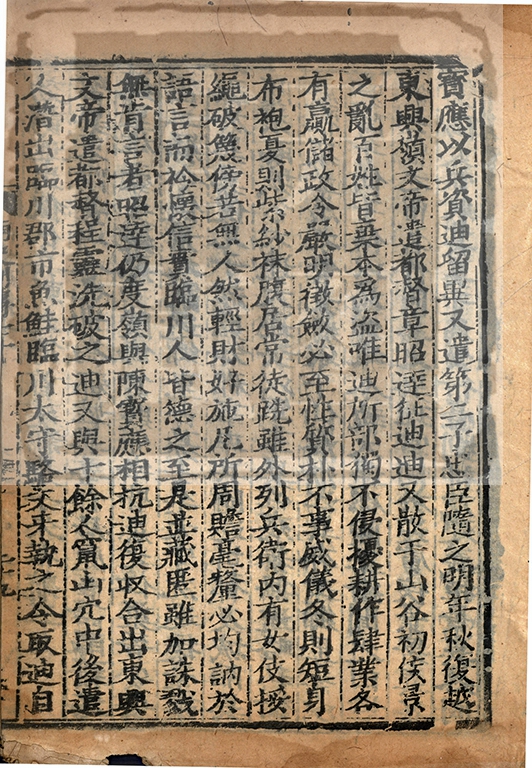 寶應以兵資迪留異又遣第二子忠臣隨之明年秋復越
東興嶺文帝遣都督章昭達征迪迪又散于山谷初侯景
之亂百姓皆棄本為盗唯迪所部獨不侵擾耕作肆業各
有贏儲政令嚴明徵斂必至性質朴不事威儀冬則短身
布袍夏則紫紗袜腹居常徒跣雖外列兵衛内有女伎挼
繩破篾傍若無人然輕財好施凡所周贍毫釐必均訥於
語言而衿懷信實臨川人皆德之至是並藏匿雖加誅戮
無肯言者昭達仍度嶺與陳寶應相抗迪復収合出東興
文帝遣都督程靈洗破之迪又與十餘人竄山穴中後遣
人潛出臨川郡市魚鮭臨川太守駱文牙執之令取迪自